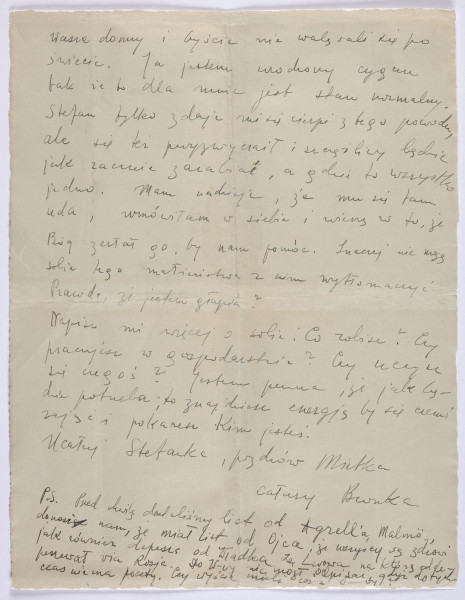 Wasze domy i byście nie wałęsali się po
świecie. Ja jestem urodzony cygan
tak że to dla mnie jest stan normalny.
Stefan tylko zdaje mi się cierpi z tego powodu,
ale się też przyzwyczaił i szczęśliwy będzie
jak zacznie zarabiać, a gdzie to wszystko
jedno. Mam nadzieję, że mu się tam
uda, wmówiłam w siebie i wierzę w to, że
Bóg zesłał go, by nam pomóc. Inaczej nie mogę
sobie tego małżeństwa z nim wytłomaczyć
Prawda, że jestem głupia?
Napisz mi więcej o sobie! Co robisz? Czy
pracujesz w gospodarstwie? Czy uczysz
się czegoś? Jestem pewna, że jak bę-
dzie potrzeba, to znajdziesz energję by się czemś
zająć i pokażesz kim jesteś.
Ucałuj Stefanka, pozdrów Mietka
całusy Bronka
P.S. Przed chwilą dostaliśmy list od Agrell'a, Malmö i
donosi nam, że miał list od Ojca, że wszyscy są zdrowi
jak również depeszę od Władka ze Lwowa, na którą odpe-
ponował via Rosja. Do W-wy nie może pisać, gdyż dotych
czas nie ma poczty. Czy wyście